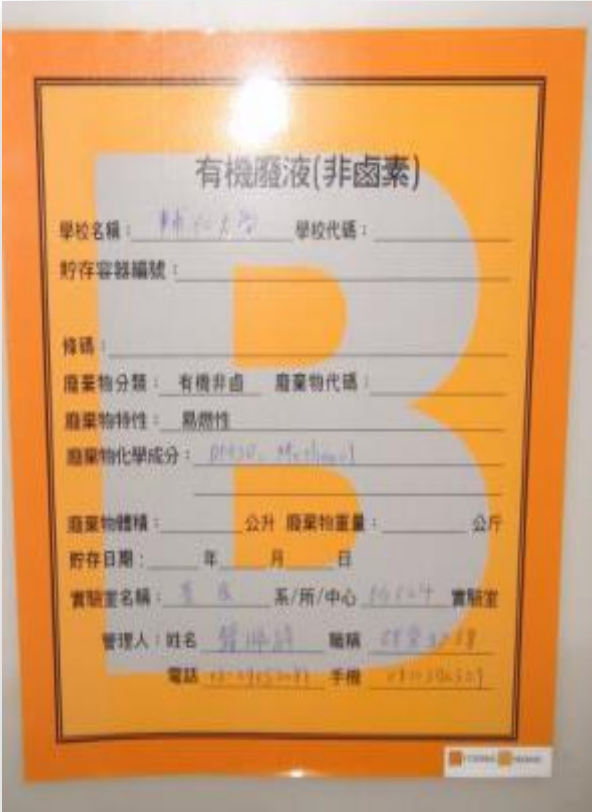 B
有機廢液(非鹵素)
學校名稱：輔仁大學 學校代碼：
貯存容器編號：
條碼：
廢棄物分類：有機非鹵 廢棄物代碼：
廢棄物特性：易燃性
廢棄物化學成分：DMSO, Methanol
廢棄物體積： 公升 廢棄物重量： 公斤
貯存日期： 年 月 日
實驗室名稱： 系/所/中心 實驗室
管理人：姓名 職稱
電話 手機